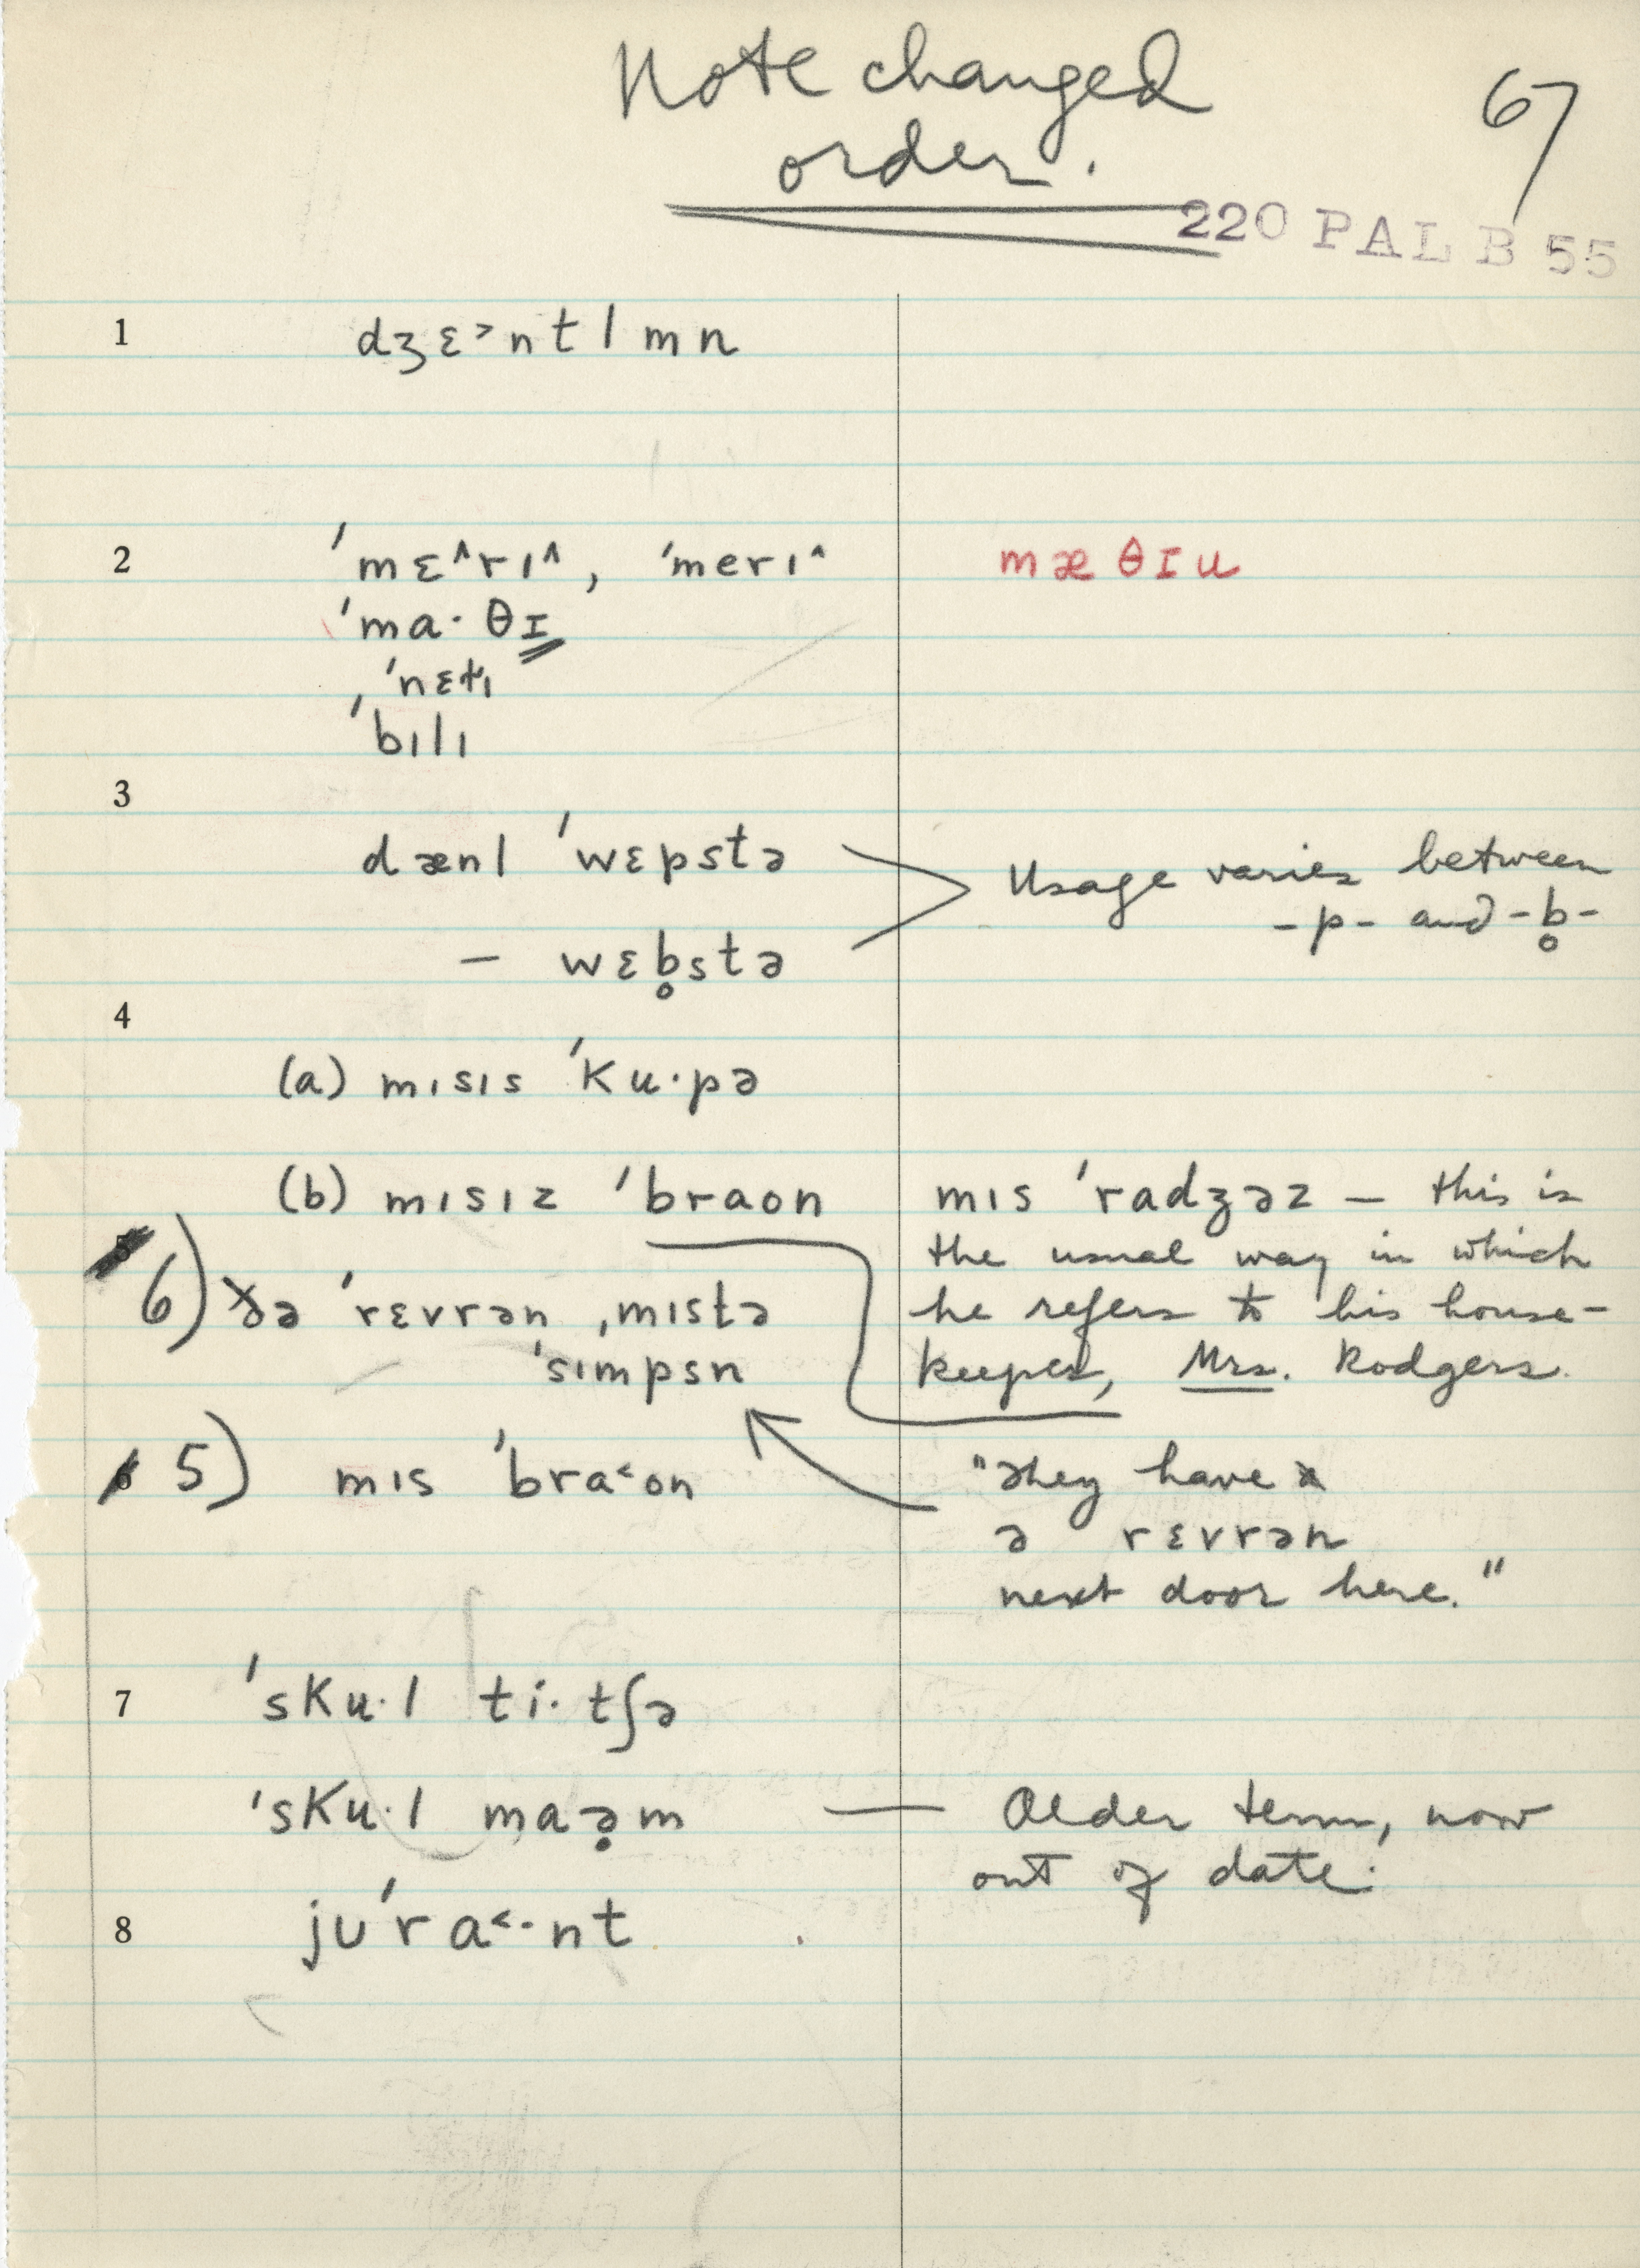 Note changed
order.
67
220 PAL B 55
1 dʒɛ˃ntlmn
2 ˈmɛ^rɪ^, ˈmerɪ^ mæθɪu
ˈma·θɪ
, ˈnɛtɪ
ˈbɪlɪ
3
dænl ˈwɛpstə
Usage varies between
-p- and -b̥-
— wɛb̥stə
4
(a) mɪsɪs ˈku·pə
(b) mɪsɪz ˈbraon
mɪs ˈradʒəz — this is
the usual way in which
he refers to his house-
keeper, Mrs. Rodgers.
6) ðə ˈrɛvrən ˌmɪstə
ˈsɪmpsn
5) mɪs ˈbra˂on
"They have
ə rɛvrən
next door here."
7 ˈsku·l ti·tʃə
ˈsku·l maə̣m — Older term, now
out of date.
8 juˈra˂·nt